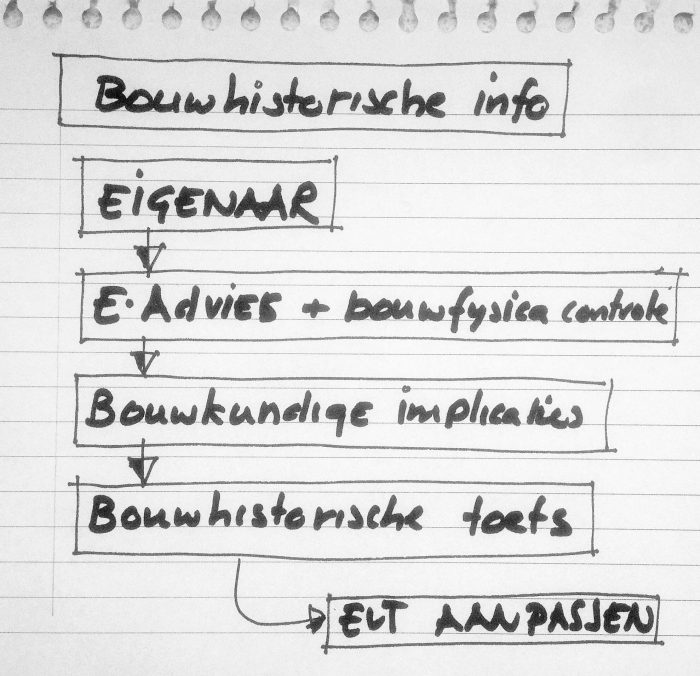 Bouwhistorische info
EIGENAAR
E. Advies + bouwfysica controle
Bouwkundige implicaties
Bouwhistorische toets
EVT AANPASSEN